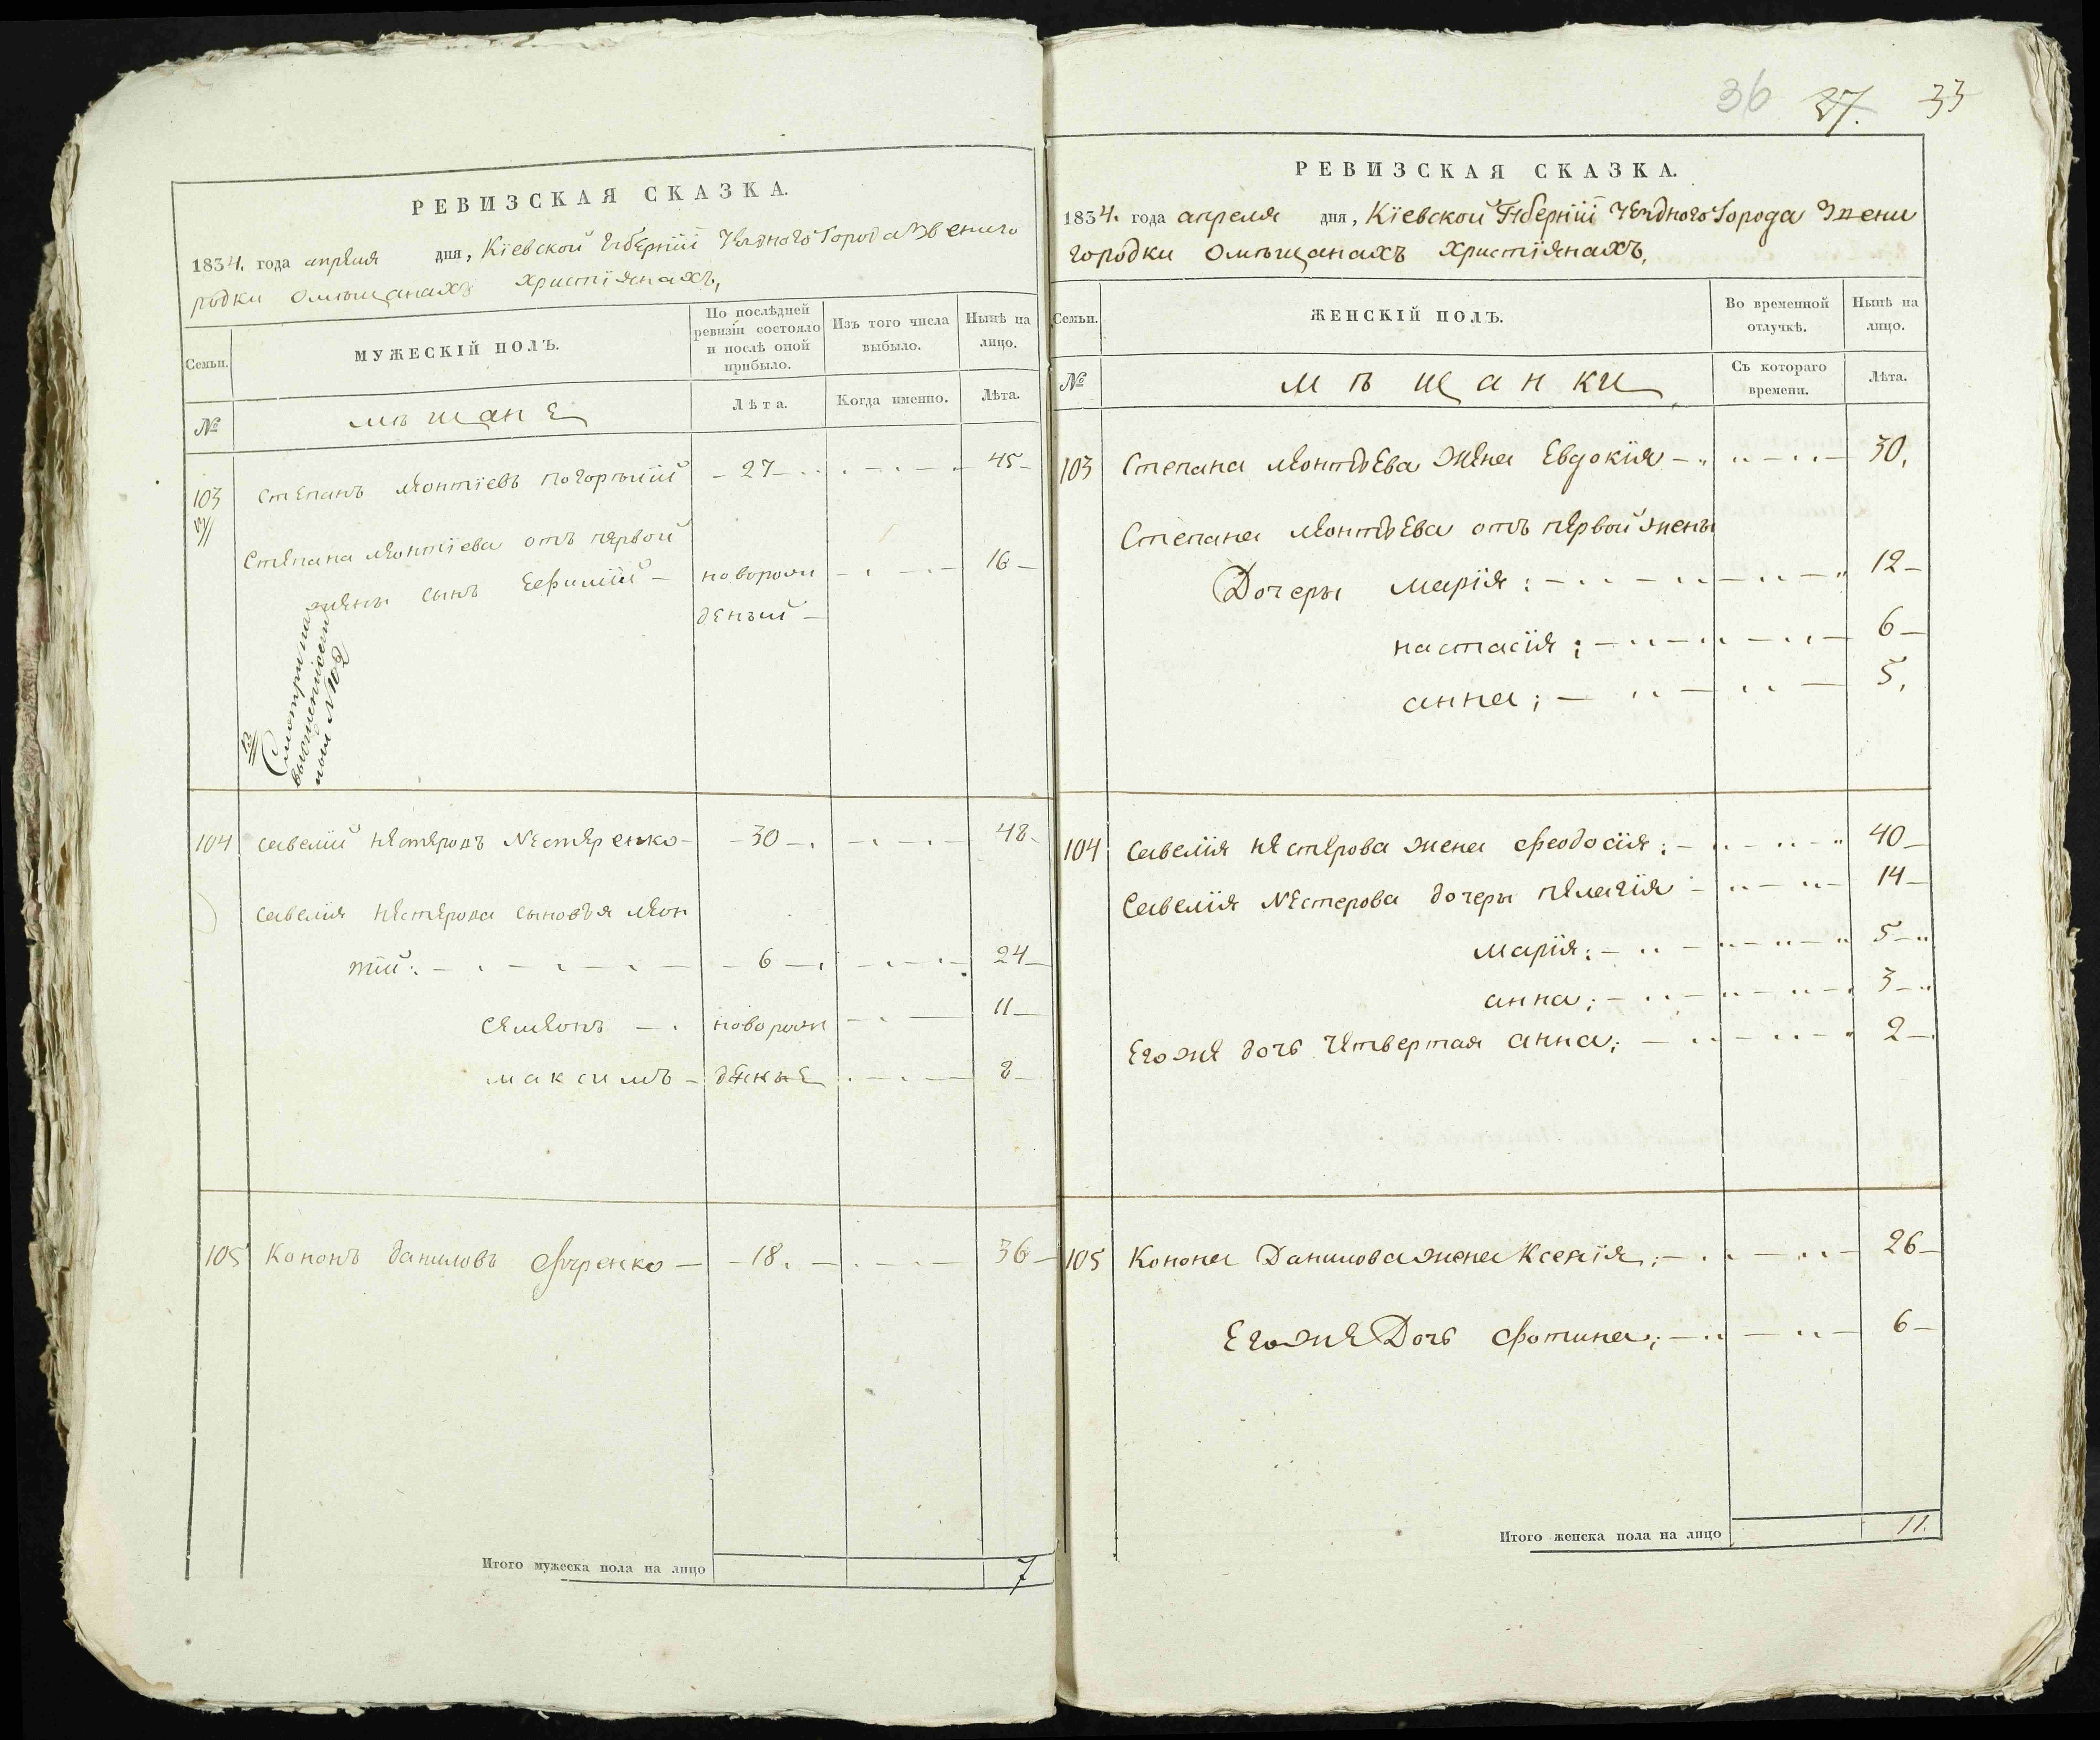 РЕВИЗСКАЯ СКАЗКА.
1834. года апреля дня, Кіевской Губерніи Уезднаго Города Звениго
родки Омѣщанахъ Христіянахъ,
Семьи.
МУЖЕСКІЙ ПОЛЪ.
По послѣдней ревизіи состояло и послѣ оной прибыло.
Изъ того числа выбыло.
Нынѣ на лицо.
№
мѣщане
Лѣта.
Когда именно.
Лѣта.
103 Степанъ Леонтіевъ Погорѣлій – 27 – 45 –
Степана Леонтіева отъ первой
жены сынъ Ефимій – новорож 16 –
деный –
Смотри на
под №102
104 Савелій Нестеровъ Нестеренко – 30 – 48 –
Савелія Нестерова сыновъя Леон
тій: – 6 – 24 –
Семенъ – новорож 11 –
максимъ – денные 8 –
105 Кононъ Даниловъ – 18. – 36 –
Итого мужеска пола на лицо 7
36 37. 33
РЕВИЗСКАЯ СКАЗКА.
1834. года апреля дня, Кіевской Губерніи Уезднаго Города Звени
городки Омѣщанахъ Христіянахъ,
Семьи.
ЖЕНСКІЙ ПОЛЪ.
Во временной отлучкѣ.
Нынѣ на лицо.
№
мѣщанки
Съ котораго времени.
Лѣта.
103 Степана Леонтьева Жена Евдокия – 30.
Степана Леонтьева отъ первой жены
Дочеры марія: – 12 –
настасія; – 6 –
анна; – 5.
104 Савелія Нестерова жена Феодосія: – 40 –
Савелія Нестерова дочеры пелагія – 14 –
марія: – 5 –
анна; – 3 –
Егоже дочь четвертая анна; – 2 –
105 Конона Данилова жена Ксенія; – 26 –
Егоже Дочь Фотина; – 6 –
Итого женска пола на лицо 11.